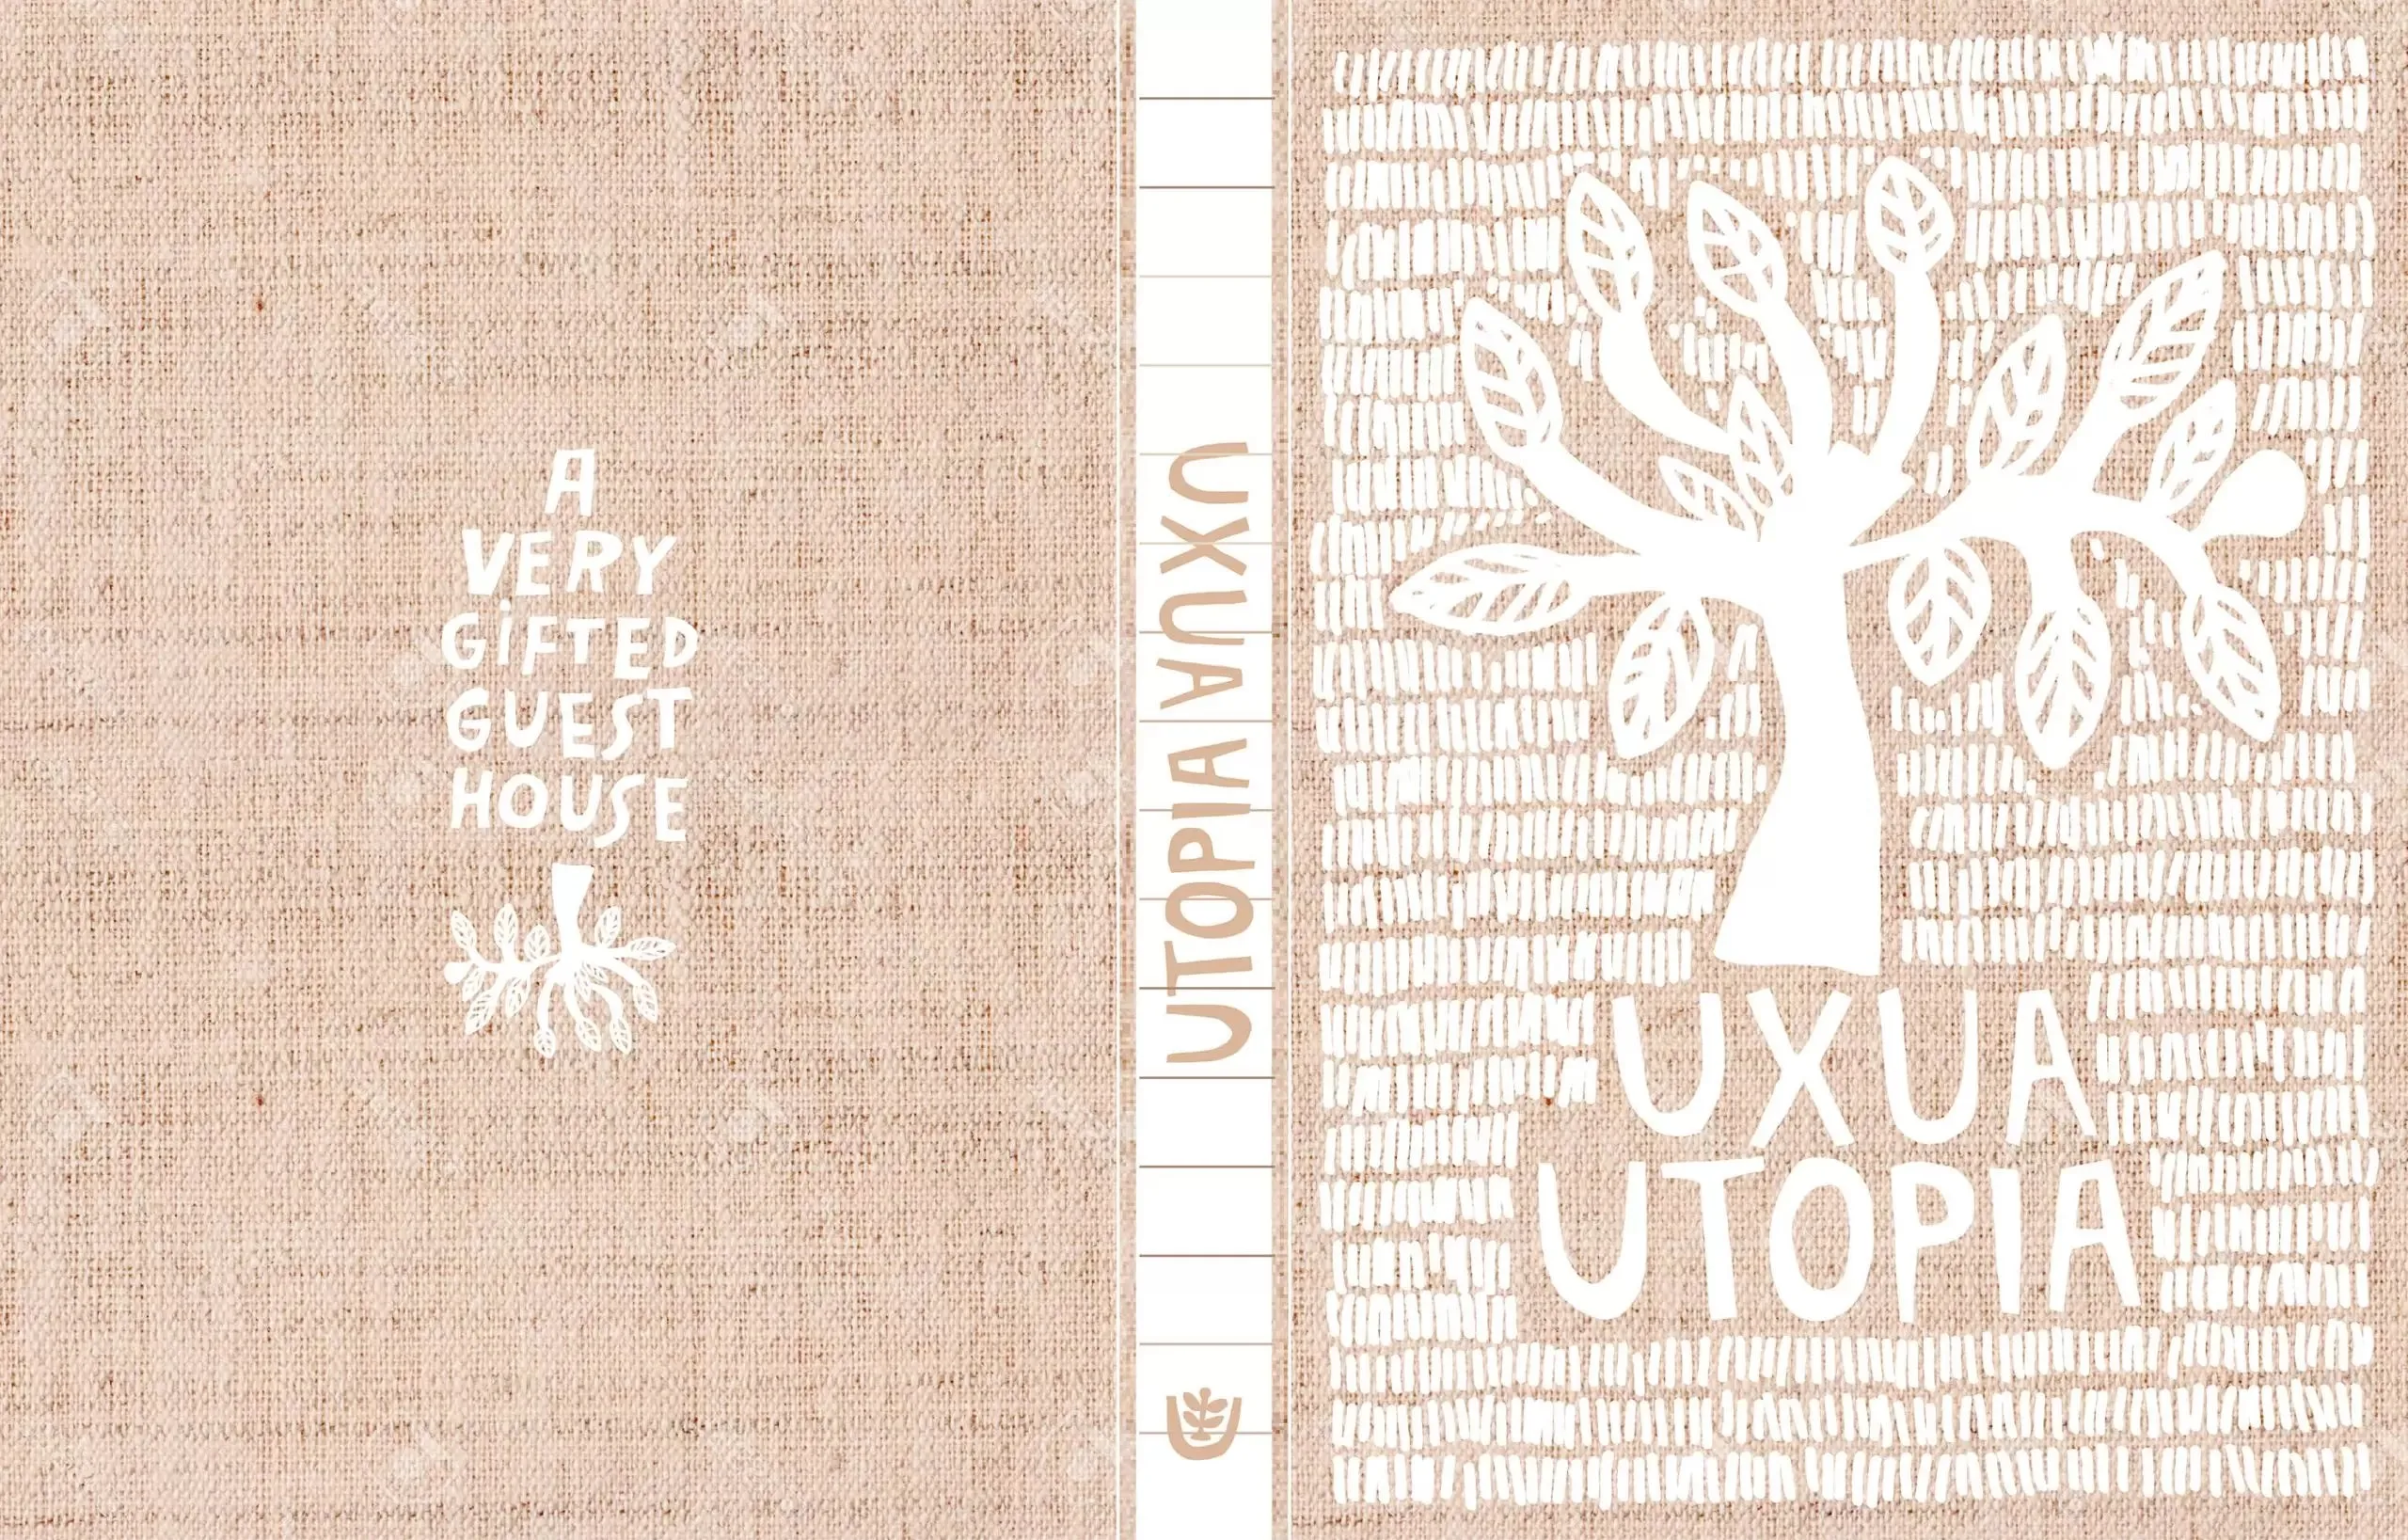 A
VERY
GiFTED
GUEST
HOUSE
UTOPIA UXUA
UXUA
UTOPIA